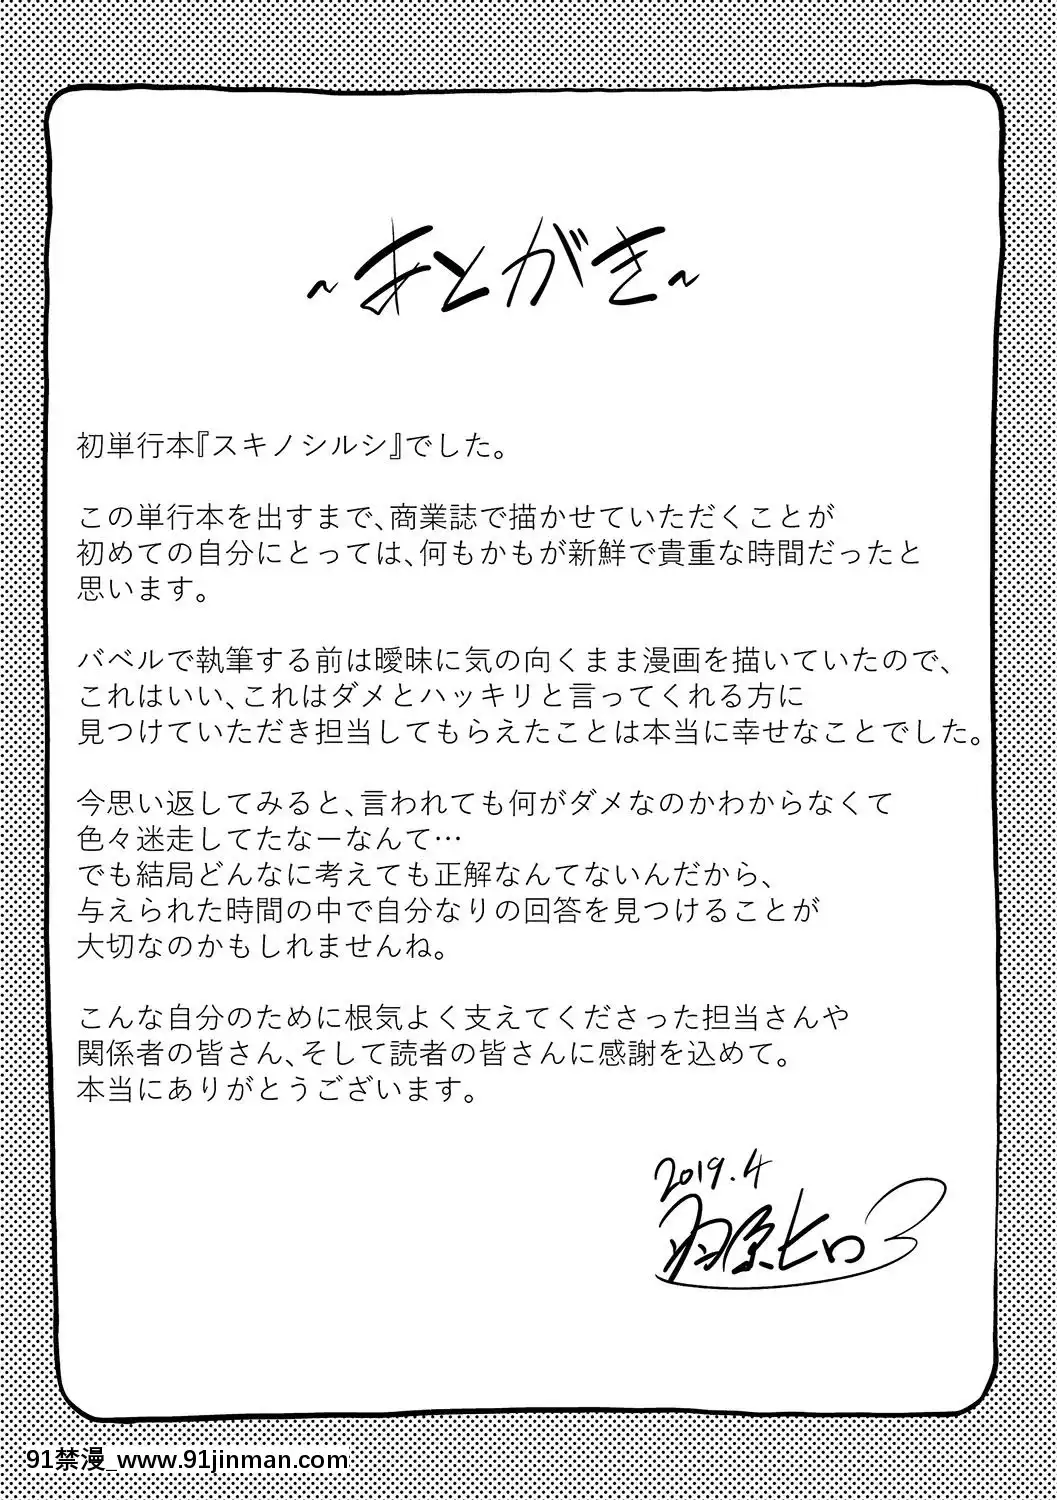 ~あとがき~
初単行本『スキノシルシ』でした。
この単行本を出すまで、商業誌で描かせていただくことが
初めての自分にとっては、何もかもが新鮮で貴重な時間だったと
思います。
バベルで執筆する前は曖昧に気の向くまま漫画を描いていたので、
これはいい、これはダメとハッキリと言ってくれる方に
見つけていただき担当してもらえたことは本当に幸せなことでした。
今思い返してみると、言われても何がダメなのかわからなくて
色々迷走してたなーなんて…
でも結局どんなに考えても正解なんてないんだから、
与えられた時間の中で自分なりの回答を見つけることが
大切なのかもしれませんね。
こんな自分のために根気よく支えてくださった担当さんや
関係者の皆さん、そして読者の皆さんに感謝を込めて。
本当にありがとうございます。
2019.4
羽原ヒロ
91禁漫_www.91jinman.com